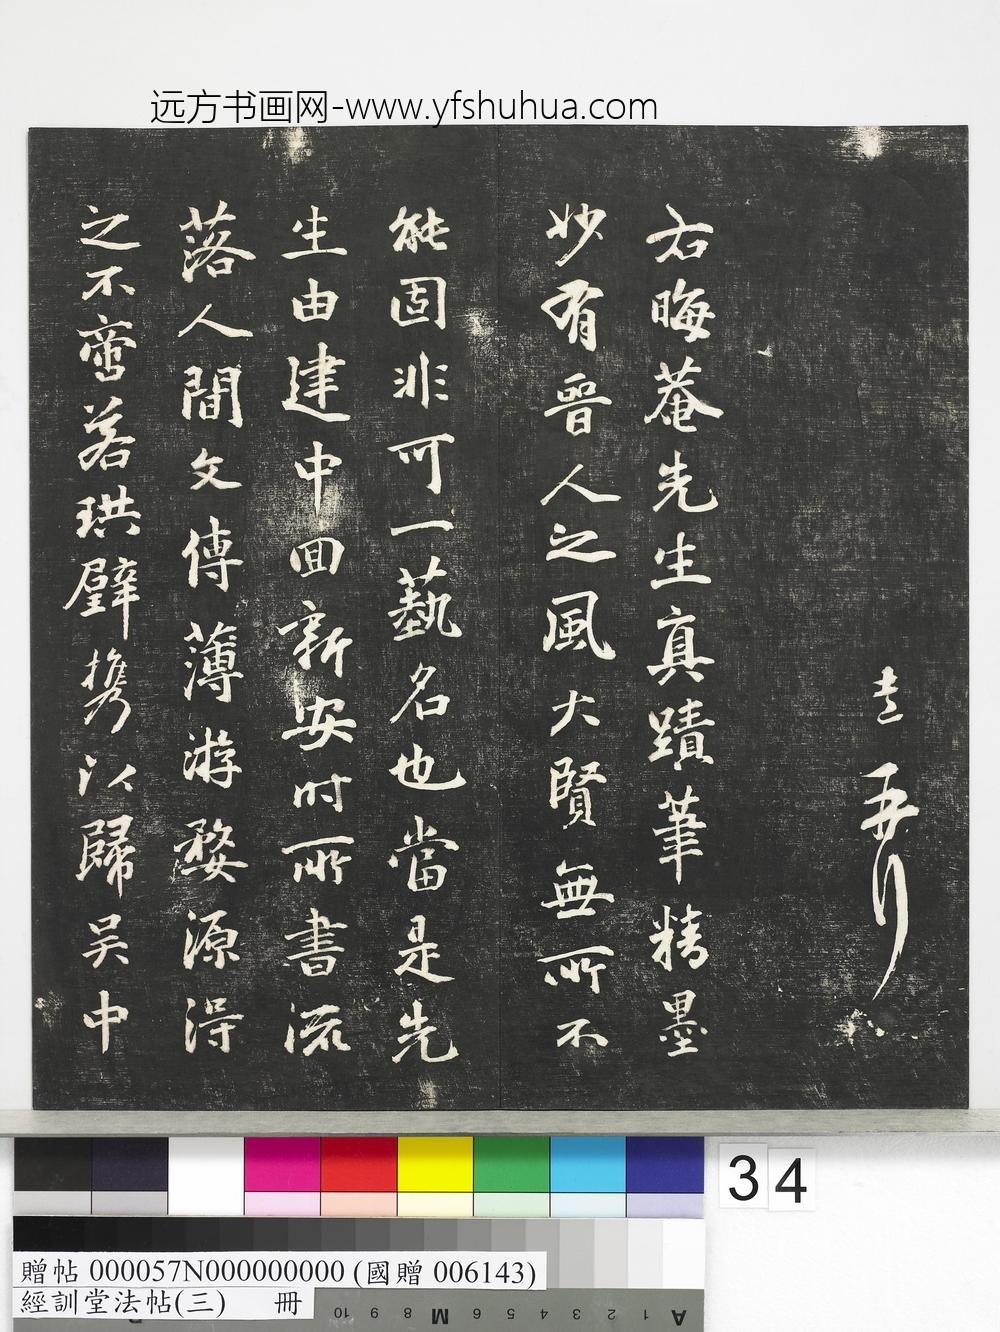 远方书画网-www.yfshuhua.com
右晦菴先生真蹟筆精墨
妙有晉人之風大賢無所不
能固非可一藝名也當是先
生由建中回新安时所書流
落人間文傅薄游婺源得
之不啻若珙璧攜以歸吴中
34
贈帖 000057N000000000 (國贈 006143)
經訓堂法帖(三) 冊
10 9 8 M 6 5 4 3 2 1 A